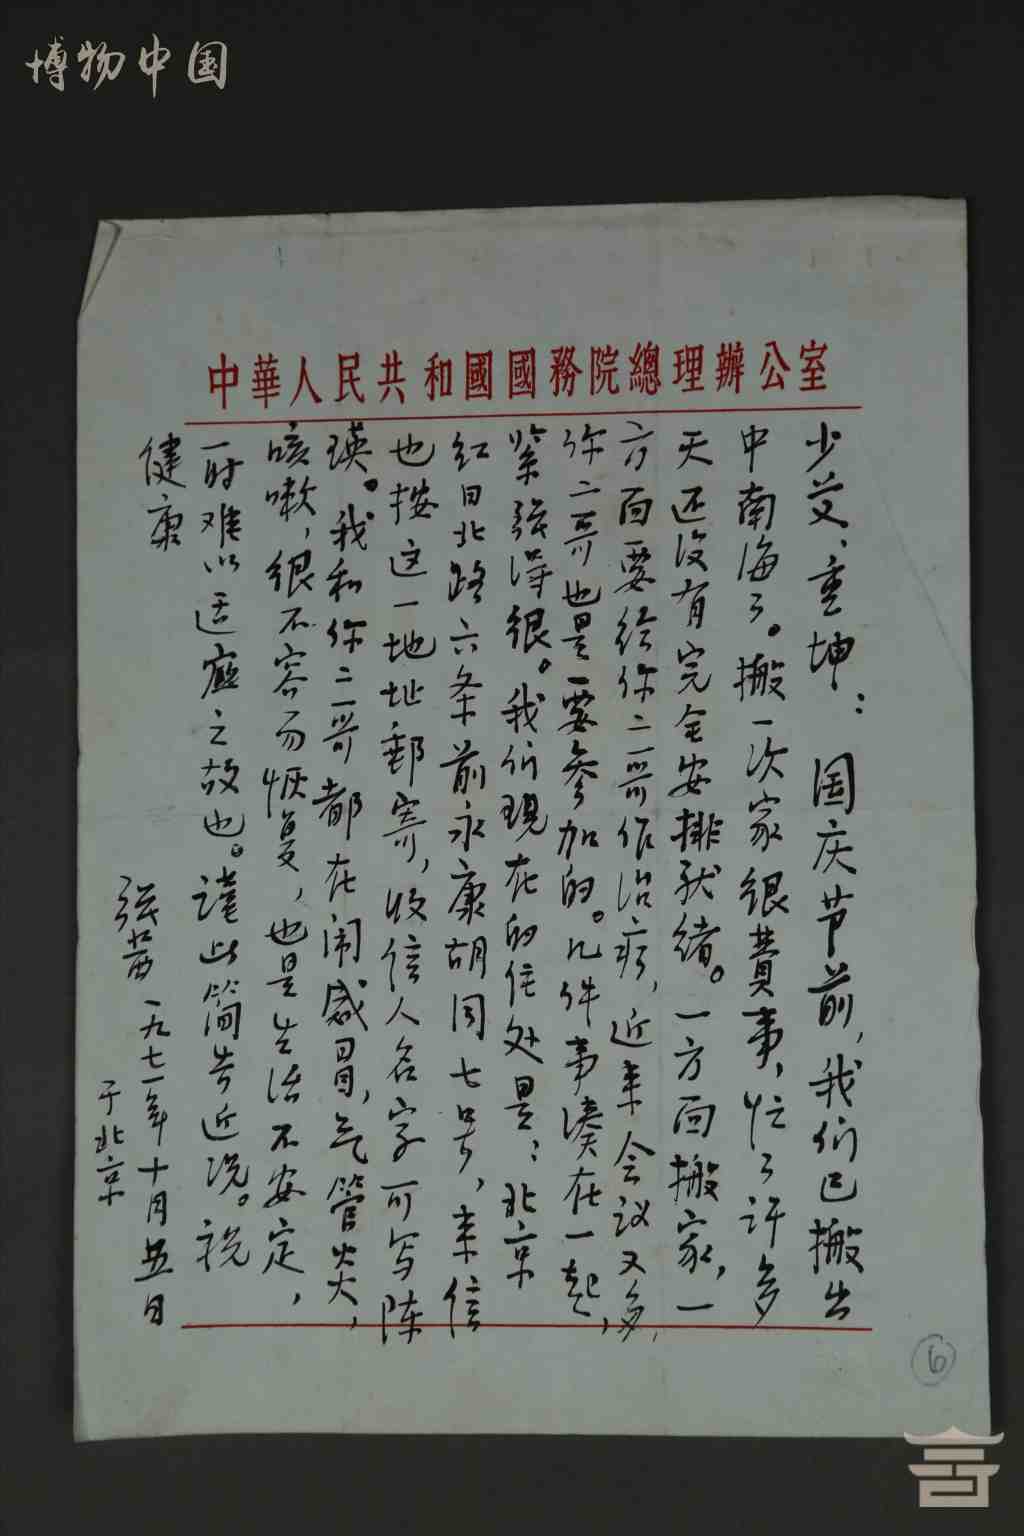 博物中国
中華人民共和國國務院總理辦公室
少艾、重坤：国庆节前，我们已搬出
中南海了。搬一次家很費事，忙了许多
天还没有完全安排就绪。一方面搬家，一
方面要给你二哥作治疗，近来会议又多，
你二哥也是要參加的。几件事凑在一起，
紧張得很。我们現在的住处是：北京
红日北路六条前永康胡同七号，来信
也按这一地址郵寄，收信人名字可写陈
瑛。我和你二哥都在闹感冒，气管炎，
咳嗽，很不容易恢复，也是生活不安定，
一时难以适應之故也。謹此简告近况。祝
健康
張茜 一九七一年十月五日
于北京
6